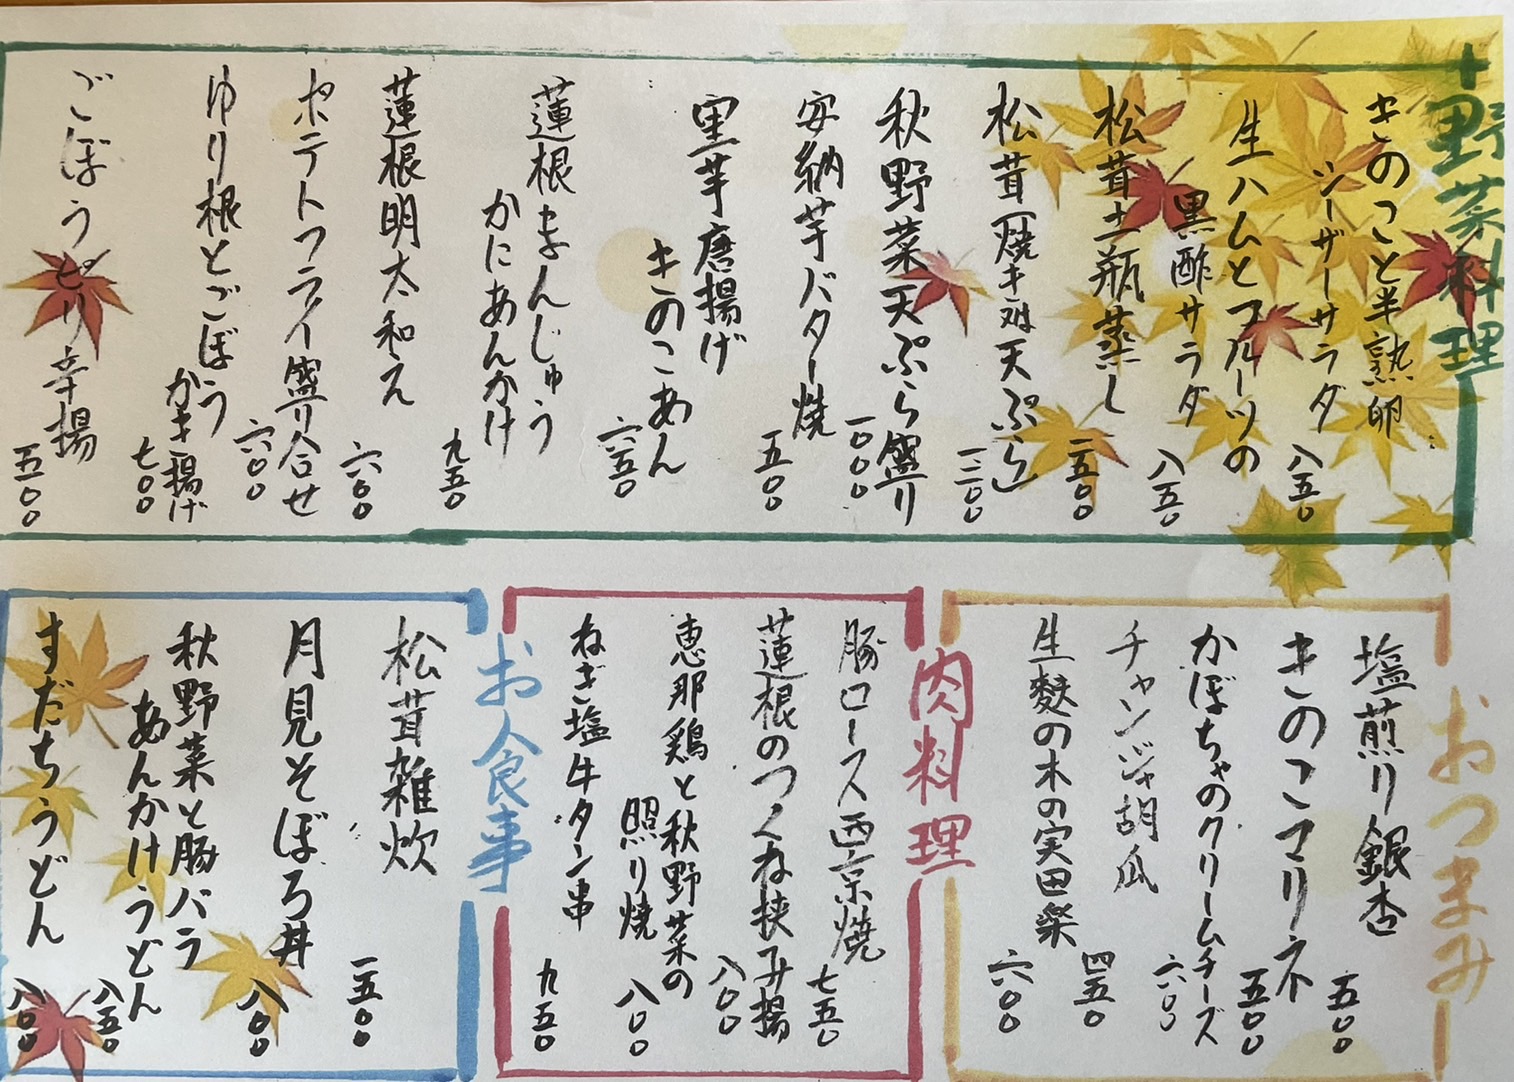 野菜料理
きのこと半熟卵
シーザーサラダ
八五〇
生ハムとフルーツの
黒酢サラダ
八五〇
松茸土瓶蒸し
一五〇〇
松茸(焼き又は天ぷら)
一二〇〇
秋野菜天ぷら盛り
一〇〇〇
安納芋バター焼
五〇〇
里芋唐揚げ
きのこあん
六五〇
蓮根まんじゅう
かにあんかけ
九五〇
蓮根明太和え
六〇〇
ポテトフライ盛り合せ
六〇〇
ゆり根とごぼう
かき揚げ
七〇〇
ごぼうピリ辛揚
五〇〇
おつまみ
塩煎り銀杏
五〇〇
きのこマリネ
五〇〇
かぼちゃのクリームチーズ
六〇〇
チャンジャ胡瓜
四五〇
生麩の木の実田楽
六〇〇
肉料理
豚ロース西京焼
七五〇
蓮根のつくね挟み揚
八〇〇
恵那鶏と秋野菜の
照り焼
八〇〇
ねぎ塩牛タン串
九五〇
お食事
松茸雑炊
一五〇〇
月見そぼろ丼
八〇〇
秋野菜と豚バラ
あんかけうどん
八五〇
すだちうどん
八〇〇